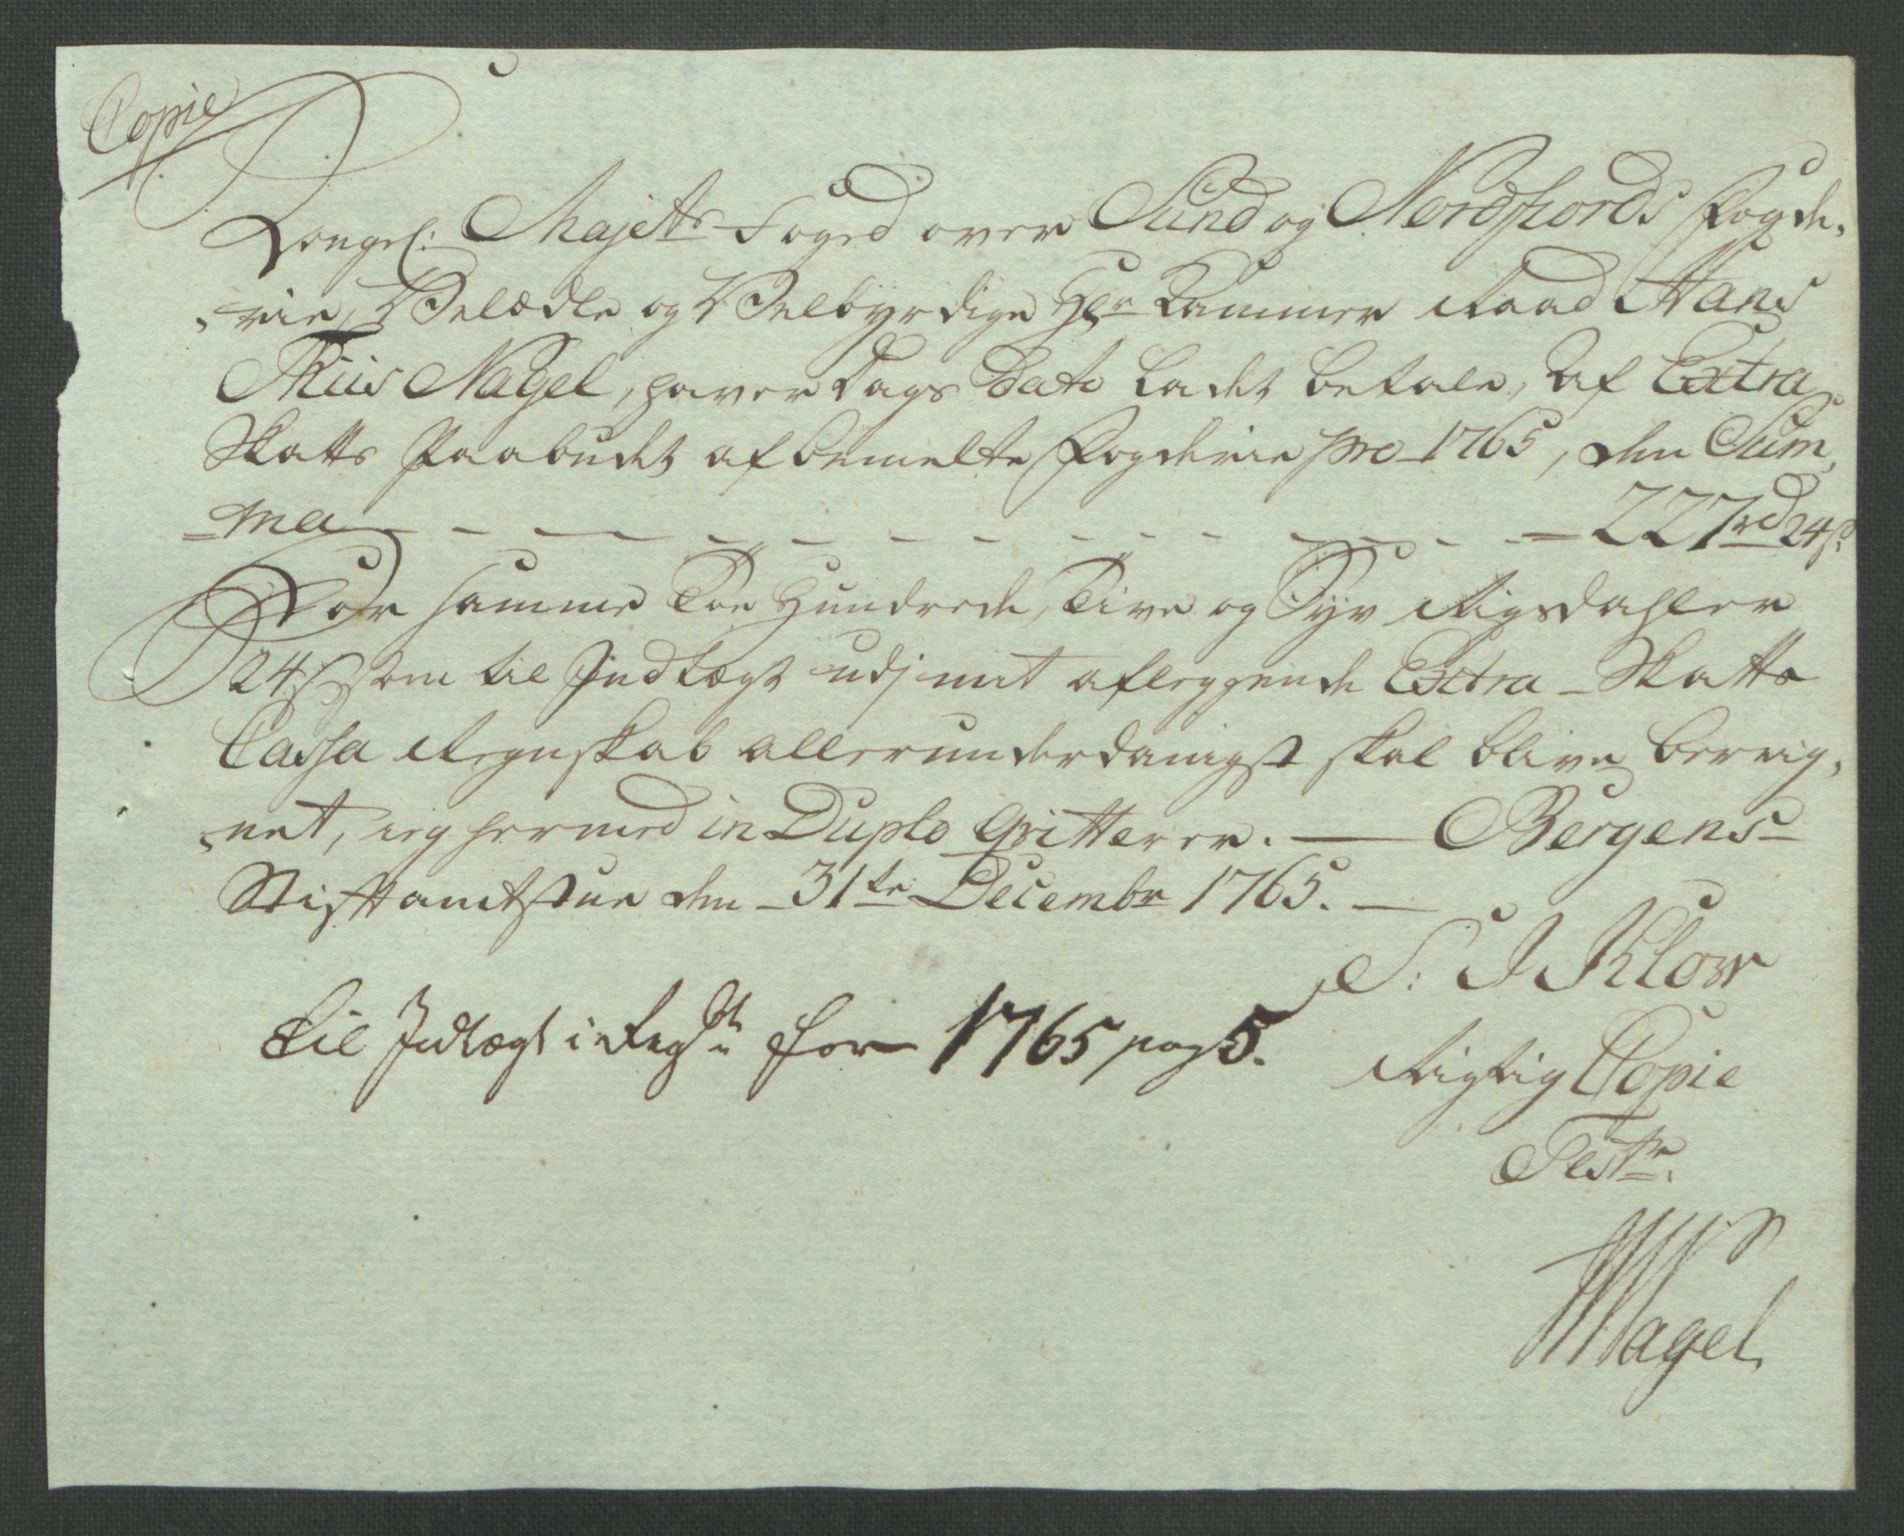 Copie
Kongel: Majets Foged over Sund og Nordfiords Fogde,
,rie, Velædle og Velbyrdige Hr Kammer Raad Hans
Thiis Nagel, haver Dags Dato ladet betale, af Extra
Skatts Paabudet af bemelte Fogderie pro 1765, den Sum,
=ma - - - - - - - - - - - - 227rd 24s.
For samme Toe Hundrede, Tive og Syv Rigsdahler
24s som til Indtægt udj mit aflæggende Extra-Skatts
Cassa Regnskab allerunderdanigst skal blive bereig,
,net, ieg hermed in Duplo qvitterer. — Bergens
Stiftamtstue den 31te Decembr 1765. —
S: J Klow
til Indtægt i Regsk for 1765 pag 5.
Rigtig Copie
Test:
Nagel